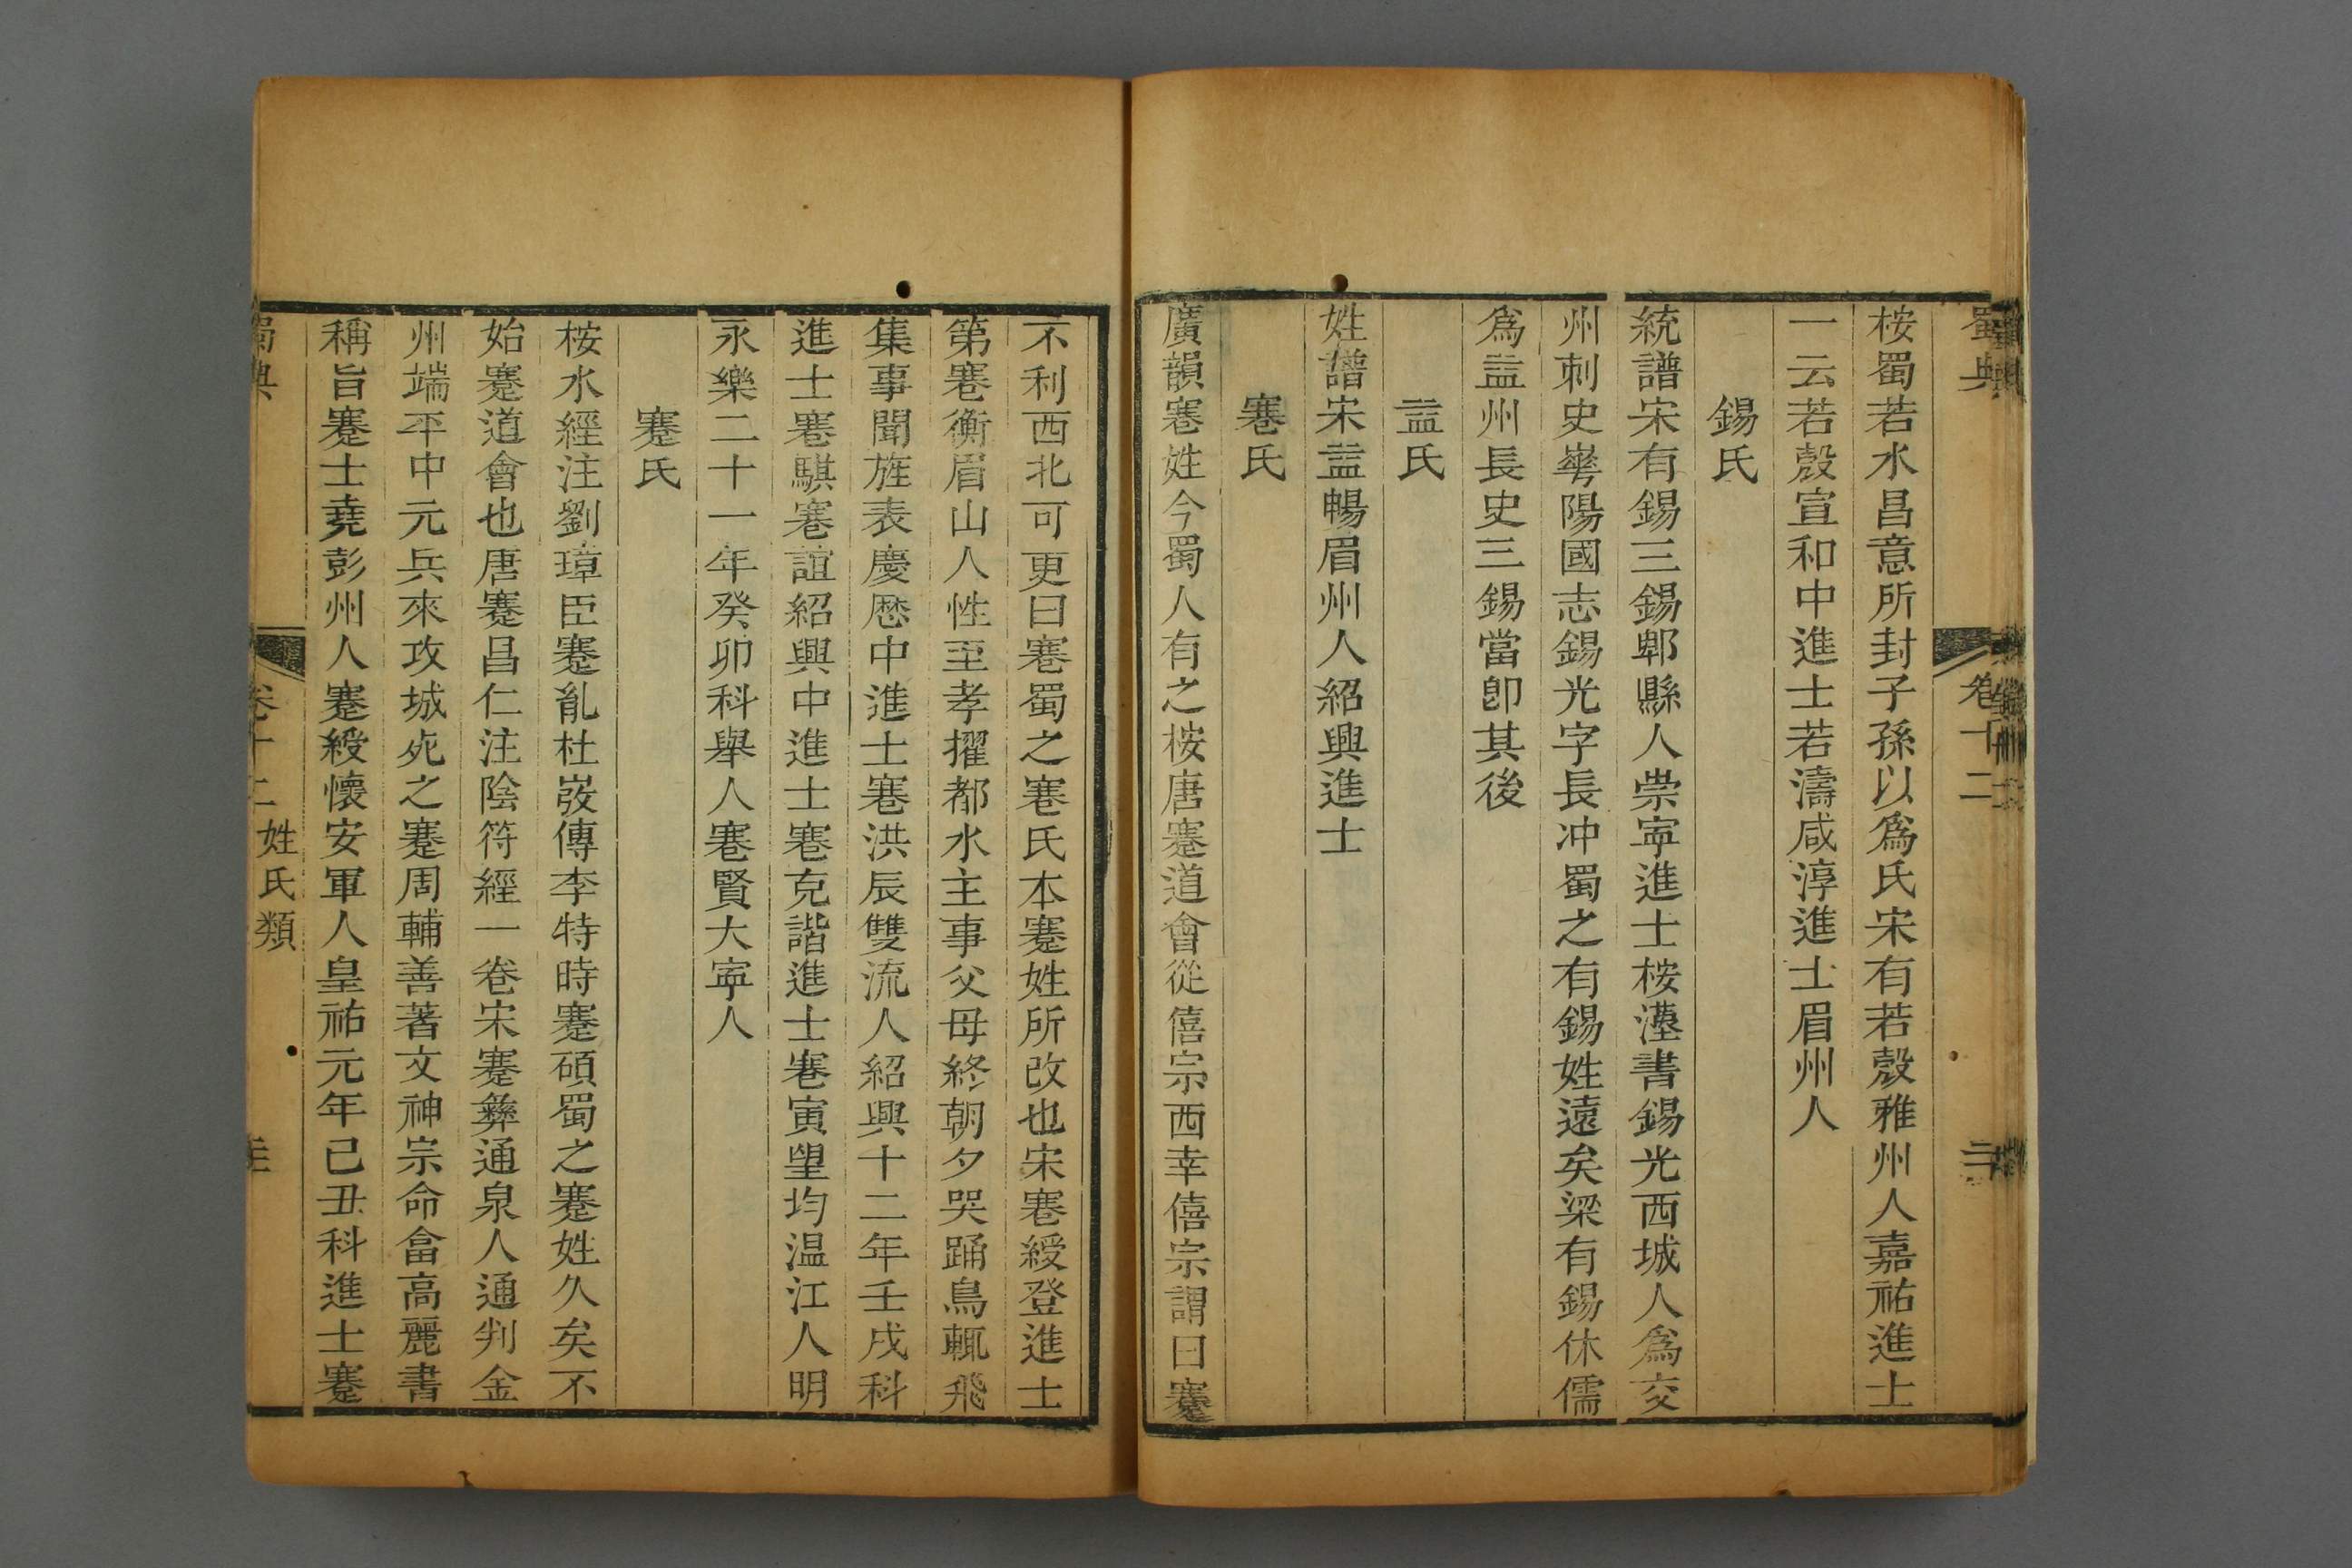 蜀典
卷十二
桉蜀若水昌意所封子孫以爲氏宋有若㱿雅州人嘉祐進士
一云若㱿宣和中進士若濤咸淳進士眉州人
錫氏
統譜宋有錫三錫郫縣人崇寧進士桉漢書錫光西城人爲交
州刺史華陽國志錫光字長冲蜀之有錫姓遠矣梁有錫休儒
爲益州長史三錫當卽其後
益氏
姓譜宋益暢眉州人紹興進士
寋氏
廣韻寋姓今蜀人有之桉唐蹇道會從僖宗西幸僖宗謂曰蹇
不利西北可更曰寋蜀之寋氏本蹇姓所改也宋寋綬登進士
第寋衡眉山人性至孝擢都水主事父母終朝夕哭踊鳥輒飛
集事聞旌表慶厯中進士寋洪辰雙流人紹興十二年壬戌科
進士寋騏寋誼紹興中進士寋克諧進士寋寅望均温江人明
永樂二十一年癸卯科舉人寋賢大寧人
蹇氏
桉水經注劉璋臣蹇胤杜弢傳李特時蹇碩蜀之蹇姓久矣不
始蹇道會也唐蹇昌仁注陰符經一卷宋蹇彝通泉人通判金
州端平中元兵來攻城死之蹇周輔善著文神宗命畣高麗書
稱旨蹇士堯彭州人蹇綬懷安軍人皇祐元年己丑科進士蹇
蜀典
卷十二
姓氏類